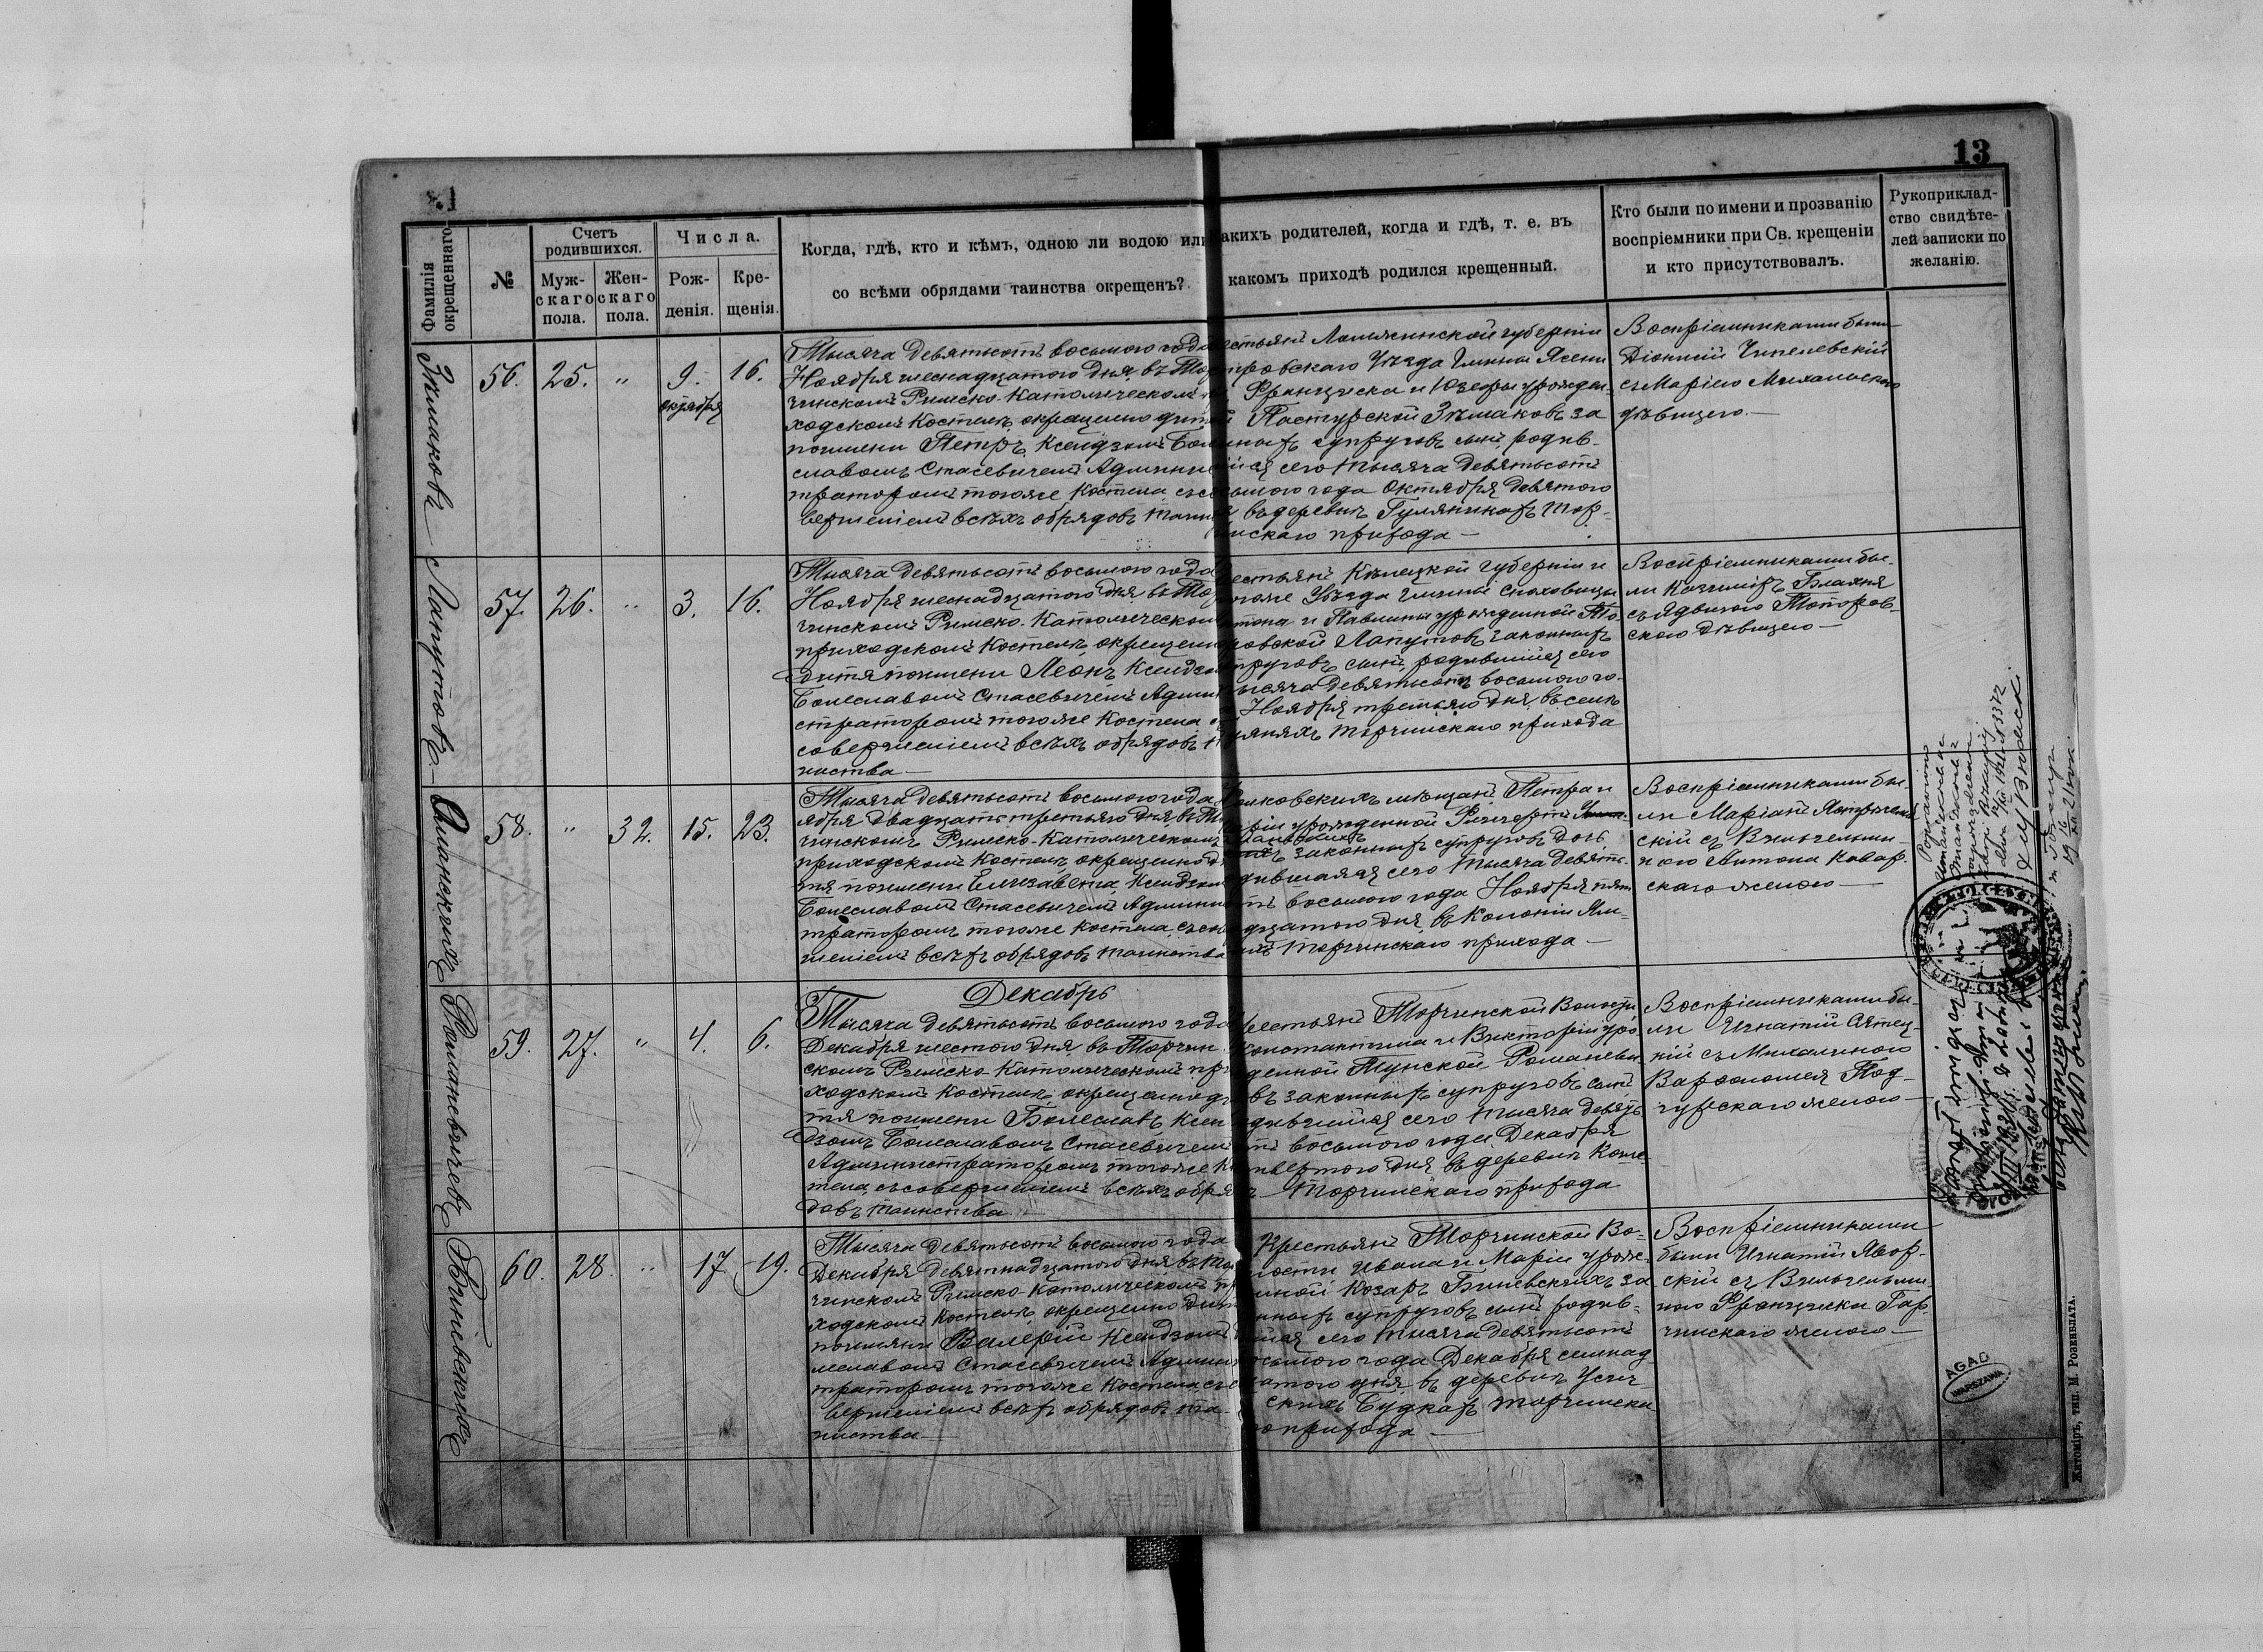 13
Фамилія окрещеннаго.
№
Счетъ родившихся.
Муж-
скаго
пола.
Жен-
скаго
пола.
Числа.
Рож-
денія.
Кре-
щенія.
Когда, гдѣ, кто и кѣмъ, одною ли водою или
со всѣми обрядами таинства окрещенъ?
какихъ родителей, когда и гдѣ, т. е. въ
какомъ приходѣ родился крещенный.
Кто были по имени и прозванію
воспріемники при Св. крещеніи
и кто присутствовалъ.
Рукоприклад-
ство свидѣте-
лей записки по
желанію.
56. 25. " 9. 16.
октября
Тысяча девятьсотъ восьмого года
Ноября шеснадцатого дня въ Тор
чинскомъ Римско-Католическом
ходскомъ Костелѣ окрещено дитя
поимени Петръ Ксендзомъ Бо
славомъ Стасевичемъ Админи
траторомъ тогоже Костела съ со
вершеніемъ всѣхъ обрядовъ таин
естьянъ Ломжинской губерніи
тровскаго Уѣзда Гмины Ясени
Францишка и Юзефы урожден
Пастурской Зѣмаковъ за
ныхъ супруговъ сынъ родив-
ійся сего тысяча девятьсотъ
сьмого года Октября девятого
въ деревнѣ Гуляникахъ Тор-
чинскаго прихода
Воспріемниками были
Діонисій Чипелевскій
съ Маріею Михальскою
дѣвицею.
Лапутовъ
57. 26. " 3. 16.
Тысяча девятьсотъ восьмого года
Ноября шеснадцатого дня въ Тор
чинскомъ Римско-Католическом
приходскомъ Костелѣ окрещено
дитя поимени Леонъ Ксендзо
Болеславомъ Стасевичемъ Админ
страторомъ тогоже Костела съ
совершеніемъ всѣхъ обрядовъ та
инства
естьянъ Кѣлецкой Губерніи и
тогоже Уѣзда Гмины
тона и Павлины урожденной То
ровской Лапутовъ законныхъ
пруговъ сынъ, родившійся сего
ысяча девятьсотъ восьмого го-
Ноября третьяго дня въ селѣ
Торчинскаго прихода
Воспріемниками бы-
ли Казиміръ Блахня
съ Ядвигою Топоров-
скою дѣвицею
58. " 32. 15. 23.
Тысяча девятьсотъ восьмого года
ября двадцать третьяго дня въ То
чинскомъ Римско-Католическомъ
приходскомъ Костелѣ окрещено ди
тя поимени Елизавета Ксендзом
Болеславомъ Стасевичемъ Админис
траторомъ тогоже Костела съ сов
шеніемъ всѣхъ обрядовъ таинства
мѣщанъ Петра и
ріи урожденной Рихертъ
законныхъ супруговъ дочь
дившаяся сего тысяча девять-
тъ восьмого года Ноября пят
дцатого дня въ Колоніи
Торчинскаго прихода
Воспріемниками бы-
ли Маріанъ
скій съ Вильгельми-
ною Антона Ковар-
скаго женою
Романевичевъ
59. 27. " 4. 6.
Декабрь
Тысяча девятьсотъ восьмого года
Декабря шестого дня въ Торчин
скомъ Римско-Католическомъ при
ходскомъ Костелѣ окрещено ди
тя поимени Болеславъ Ксен
дзомъ Болеславомъ Стасевичемъ
Администраторомъ тогоже Ко
тела съ совершеніемъ всѣхъ обря
довъ таинства
рестьянъ Торчинской Волости
Константина и Викторіи уро
денной Тунской Романеви
въ законныхъ супруговъ сынъ
дившійся сего тысяча девять
тъ восьмого года Декабря
твертого дня въ деревнѣ
Торчинскаго прихода
Воспріемниками бы-
ли Игнатій
кій съ Михалиною
Варфоломея Под-
гурскаго женою
Биневскихъ
60. 28. " 17. 19.
Тысяча девятьсотъ восьмого года
Декабря девятнадцатого дня въ Тор
чинскомъ Римско-Католическомъ пр
ходскомъ Костелѣ окрещено дит
поимяни Валерій Ксендзомъ
леславомъ Стасевичемъ Админ
траторомъ тогоже Костела съ с
вершеніемъ всѣхъ обрядовъ та
инства
Крестьянъ Торчинской Во-
лости Ивана и Маріи урож-
нной Козаръ Биневскихъ за
нныхъ супруговъ сынъ родив-
ійся сего тысяча девятьсотъ
осьмого года Декабря семнад-
цатого дня въ деревнѣ Усич-
скихъ Будкахъ Торчинска
го прихода
Воспріемниками
были Игнатій Явор-
скій съ Вильгельми-
ною Францишка Гар-
чинскаго женою
AGAD
WARSZAWA
Житоміръ, тип. М. Розенблата.